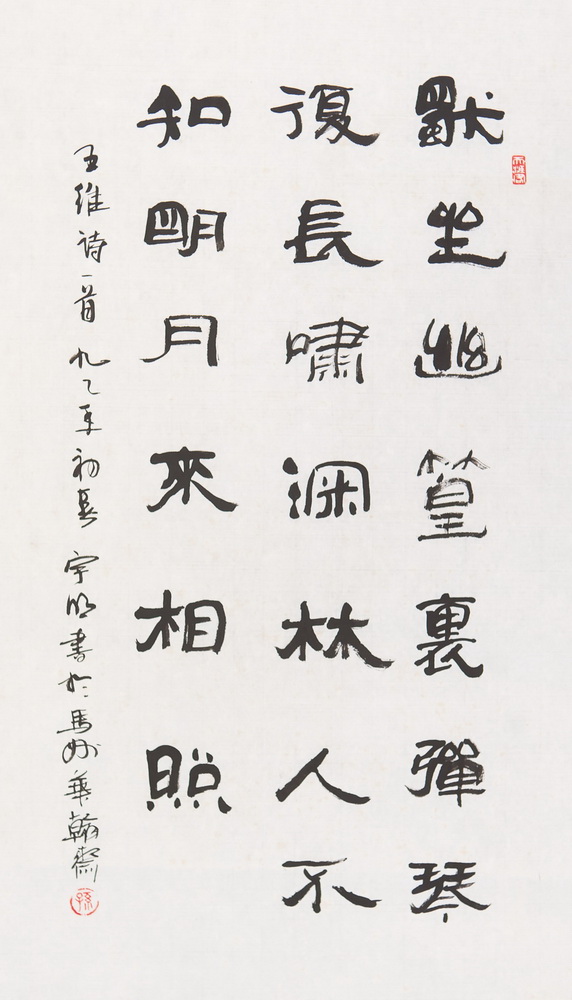 獨坐幽篁裏彈琴
復長嘯深林人不
知明月來相照
王維詩一首 九七年初春 宇明書於馬州華翰齋
孫